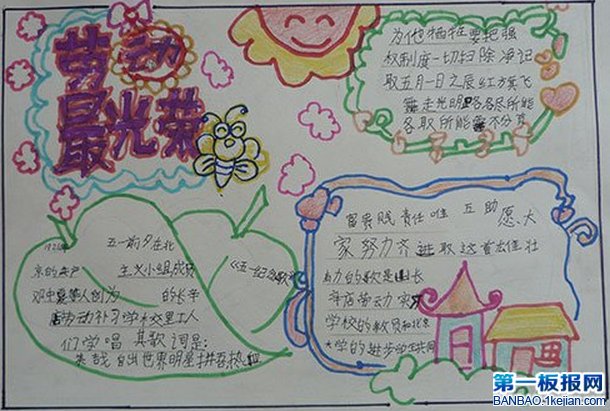 劳动
最光荣
为他牺牲要把强
权制度一切扫除净记
取五月一日之辰红旗飞
走光明各尽所能
各取所能不分
富贵贱责任唯互助愿大
家努力齐进取这首雄壮
有力的歌是由长
辛店劳动实
学校的教员和北京
大学的进步学生共同
1921年 五一前夕在北
《五一纪念歌》
京的共产 主义小组成员
邓中夏等人创为 的长辛
店劳动补习学校里工人
们学唱 其歌词是:
美哉自由世界明星拼吾热血
第一板报网
BANBAO.1kejian.com